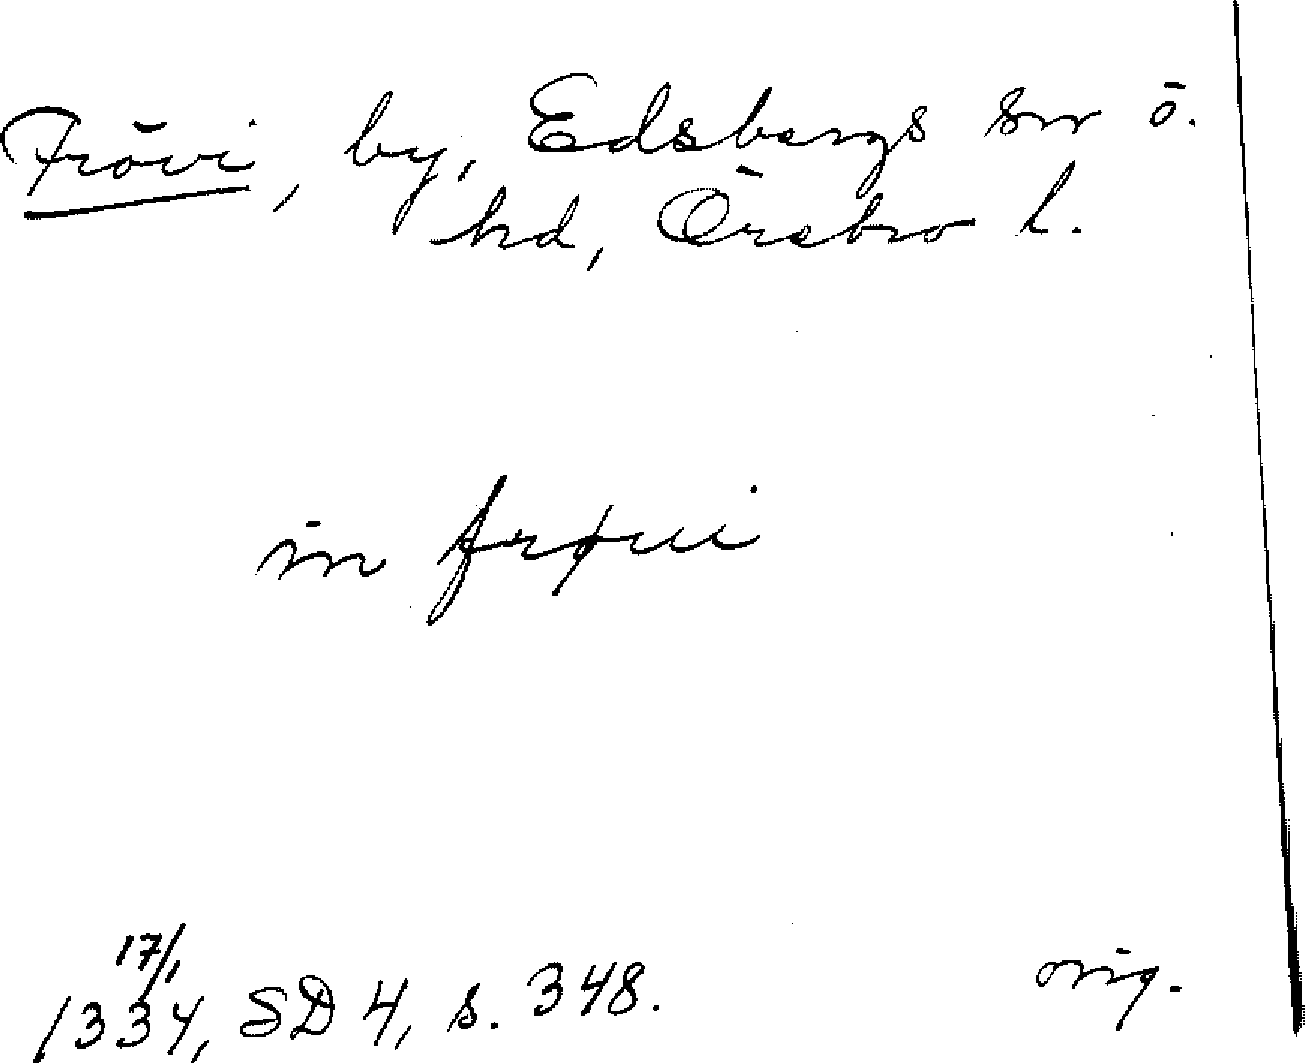 Frövi, by, Edsbergs sn o.
hd, Örebro l.
in frøui
17/1
1334, SD 4, s. 348.
orig.